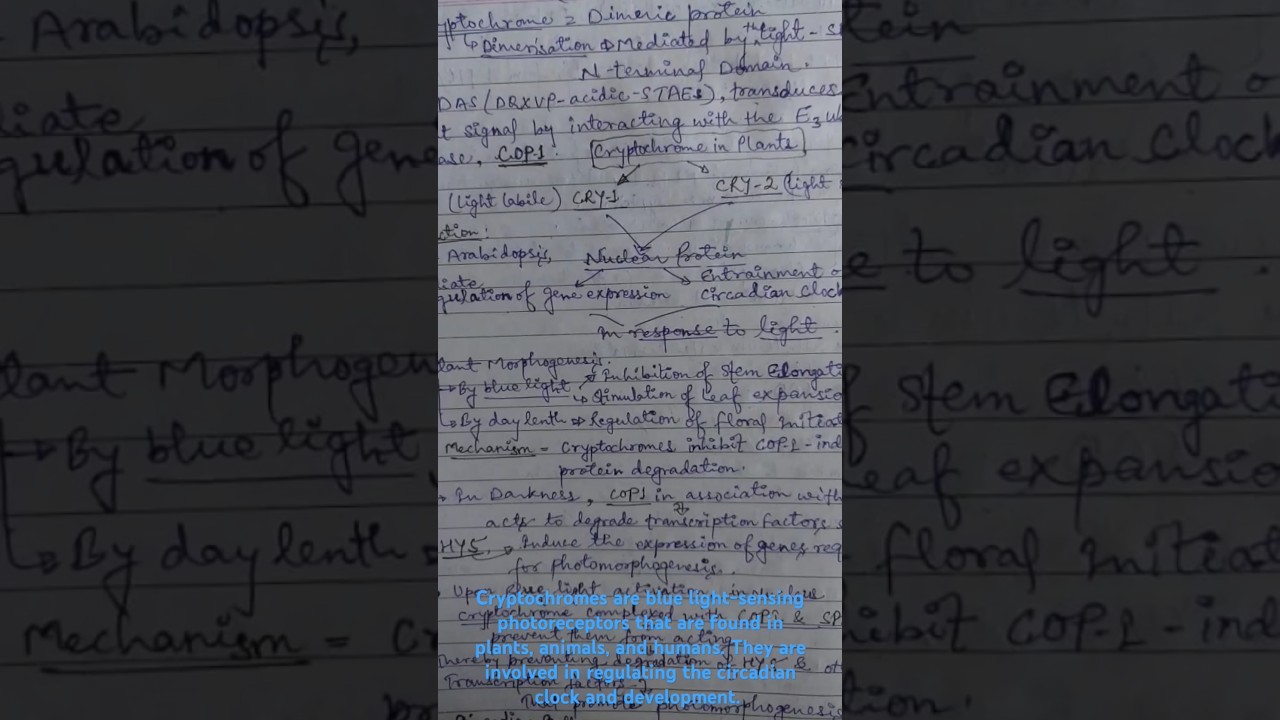 ptochrome = Dimeric protein
↳ Dimerisation ⇒ Mediated by the light - s
N-terminal Domain.
DAS (DQXVP-acidic-STAES), transduces
t signal by interacting with the E3 u
ase, COP1.
[Cryptochrome in Plants]
(light labile) CRY-1
CRY-2 (light
ction:
Arabidopsis, Nuclear protein
iate
gulation of gene expression
Entrainment o
circadian clock
in response to light.
lant Morphogenesis.
→ By blue light → Inhibition of Stem Elongati
↳ Stimulation of Leaf expansio
↳ By day lenth ⇒ Regulation of floral initiat
Mechanism - Cryptochromes inhibit COP-1-ind
protein degradation.
In Darkness, COP1 in association with
acts to degrade transcription factors s
HY5. → Induce the expression of genes req
for photomorphogenesis.
Upon Blue light activation
cryptochrome complexed with COP1 & SP
prevent them from acting
thereby preventing degradation of HY5 & ot
Transcription factors
that promote photomorphogenesis
Cryptochromes are blue light-sensing
photoreceptors that are found in
plants, animals, and humans. They are
involved in regulating the circadian
clock and development.